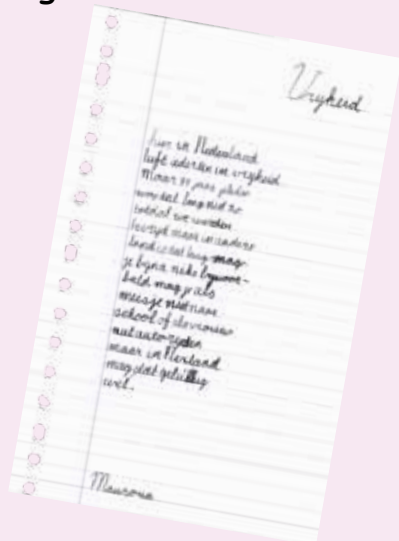 Vrijheid
hier in Nederland
leeft iedereen in vrijheid
Maar 77 jaar geleden
was dat lang niet zo
totdat we werden
bevrijd maar in andere
landen is dat lang mag
je bijna niks bijvoor-
beeld mag je als
meisje niet naar
school of als vrouw
niet autorijden
maar in Nerland
mag dat gelukkig
wel.